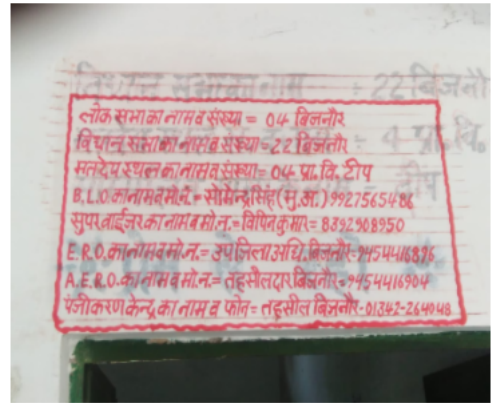 विधान सभा का नाम : 22 बिजनौ
लोक सभा का नाम व संख्या = 04 बिजनौर
विधान सभा का नाम व संख्या = 22 बिजनौर
4 प्रा. वि.
मतदेय स्थल का नाम व संख्या = 04 प्रा. वि. टीप
टीप
B.L.O. का नाम व मो.न. = सोमेन्द्र सिंह (मु.अ.) 9927565486
सुपरवाईजर का नाम व मो.न. = विपिन कुमार = 8392908950
E.R.O. का नाम व मो.न. = उपजिला अधि. बिजनौर = 9454416876
A.E.R.O. का नाम व मो.न. = तहसीलदार बिजनौर = 9454416904
पंजीकरण केन्द्र का नाम व फोन = तहसील बिजनौर - 01342-264048